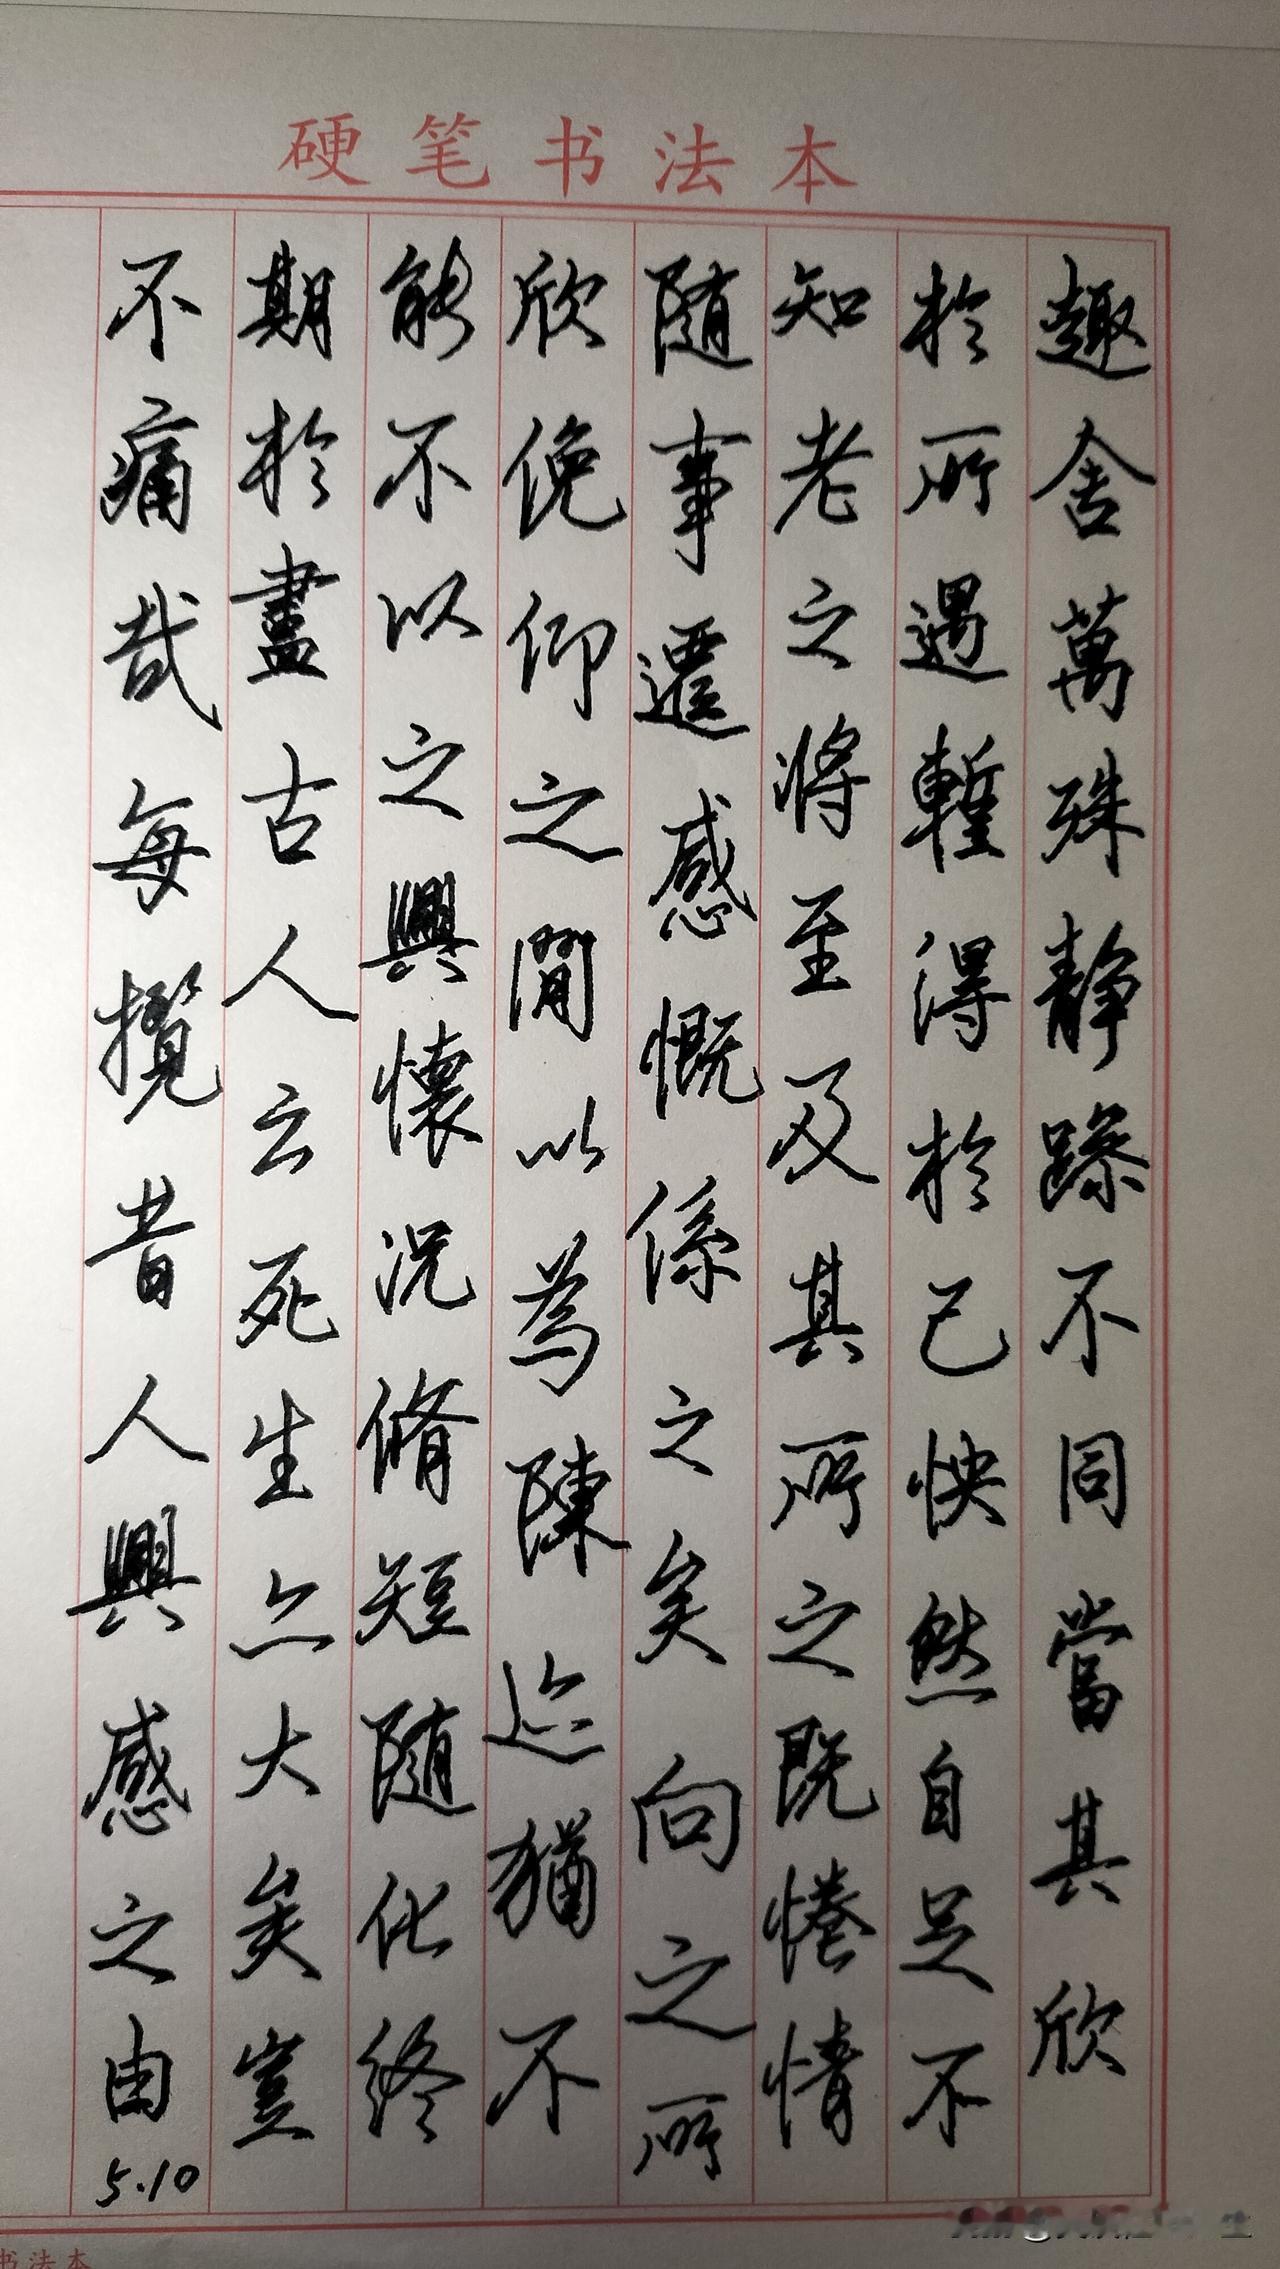 硬笔书法本
趣舍萬殊静躁不同當其欣
於所遇暫得於己怏然自足不
知老之將至及其所之既惓情
随事遷感慨係之矣向之所
欣俛仰之閒以為陳迹猶不
能不以之興懷況脩短随化終
期於盡古人云死生亦大矣豈
不痛哉每攬昔人興感之由
5.10
书法本